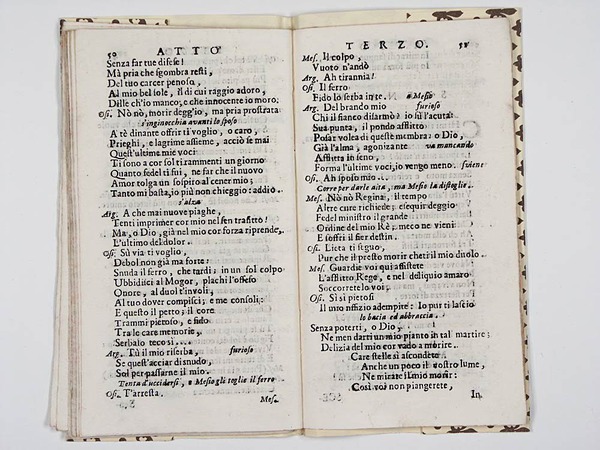 50 ATTO
Senza far tue difese!
Mà pria che sgombra resti,
Del tuo carcer penoso,
Al mio bel sole, il di cui raggio adoro,
Dille ch'io manco, e che innocente io moro.
Osi. Nò nò, morir degg'io, ma pria prostrata
s'inginocchia avanti lo sposo
A tè dinante offrir ti voglio, o caro,
Prieghi, e lagrime assieme, acciò se mai
Quest'ultime mie voci
Ti sono a cor sol ti rammenti un giorno
Quanto fedel ti fui, ne far che il nuovo
Amor tolga un sospiro al cener mio;
Tanto mi basta, io più non chieggio: addio.
s'alza
Arg. A che mai nuove piaghe,
Tenti imprimer cor mio nel sen trafitto!
Ma, o Dio, già nel mio cor forza riprende,
L'ultimo del dolor.
Osi. Sù via ti voglio,
Debol non già ma forte:
Snuda il ferro, che tardi: in un sol colpo
Ubbidisci al Mogor, plachi l'offeso
Onore, al duol t'involi;
Al tuo dover compisci; e me consoli:
E questo il petto; il core
Trammi pietoso, e fido
Tra le care memorie,
Serbalo teco sì....
Arg. Tù il mio riserba, furioso
Se quest'acciar di snudo,
Sol per passarne il mio.
Tenta d'uccidersi, e Mesio gli toglie il ferro
Osi. T'arresta.
Mes.
TERZO. 51
Mes. Il colpo,
Vuoto n'andò
Arg. Ah tirannia!
Osi. Il ferro
Fido lo serba in te. a Mesio
Arg. Del brando mio furioso
Chi il fianco disarmò? io sù l'acuta
Sua punta, il pondo afflitto
Posar volea di queste membra? o Dio,
Già l'alma, agonizante va mancando
Afflitta in seno,
Forma l'ultime voci, io vengo meno. sviene
Osi. Ah sposo mio..
Corre per darle aita, ma Mesio la distoglie.
Mes. Nò nò Regina, il tempo
Altre cure richiede; esequir deggio
Fedel ministro il grande
Ordine del mio Rè; meco ne vieni
E soffri il fier destin.
Osi. Lieta ti sieguo,
Pur che il presto morir cheti il mio duolo.
Mes. Guardie voi qui assistete
L'afflitto Rege, e nel deliquio amaro
Soccorretelo voi;
Osi. Sì sì pietosi
Il mio uffizio adempite: Io pur ti lascio
lo bacia ed abbraccia
Senza poterti, o Dio,
Ne men darti un mio pianto in tal martire;
Delizia del mio cor vado a morire.
Care stelle si ascondete
Anche un poco il vostro lume,
Ne mirate il mio morir:
Così voi non piangerete,
In.